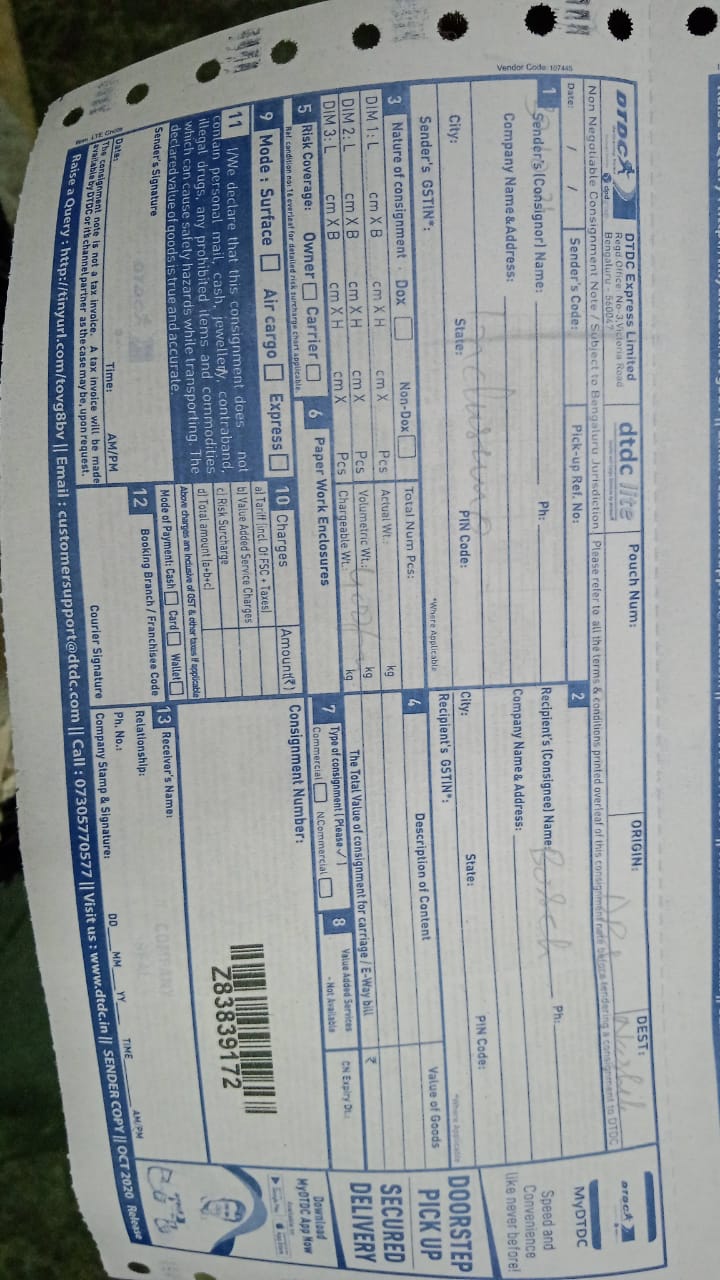 Vendor Code: 107445
DTDC
dpd
DTDC Express Limited
Regd Office: No-3, Victoria Road
Bengaluru - 560047
dtdc lite
Pouch Num:
ORIGIN:
DEST:
Non Negotiable Consignment Note / Subject to Bengaluru Jurisdiction
Please refer to all the terms & conditions printed overleaf of this consignment note before tendering a consignment to DTDC
Date: / /
Sender's Code:
Pick-up Ref. No:
1 Sender's (Consignor) Name:
Ph:
Company Name & Address:
City:
State:
PIN Code:
Sender's GSTIN*:
*Where Applicable
2
Recipient's (Consignee) Name: Bosch
Ph:
Company Name & Address:
City:
State:
PIN Code:
Recipient's GSTIN*:
*Where Applicable
3 Nature of consignment · Dox
Non-Dox
Total Num Pcs:
DIM 1: L cm X B cm X H cm X Pcs
Actual Wt.: kg
DIM 2: L cm X B cm X H cm X Pcs
Volumetric Wt.: kg
DIM 3: L cm X B cm X H cm X Pcs
Chargeable Wt.: kg
4 Description of Content
Value of Goods
The Total Value of consignment for carriage / E-Way bill ₹
5 Risk Coverage: Owner Carrier
6 Paper Work Enclosures
7 Type of consignment (Please ✓)
Commercial N.Commercial
8 Value Added Services
- Not Available
CN Expiry Dt.:
9 Mode: Surface Air cargo Express
10 Charges Amount(₹)
a) Tariff (incl. Of FSC + Taxes)
b) Value Added Service Charges
c) Risk Surcharge
d) Total amount (a+b+c)
Above charges are inclusive of GST & other taxes if applicable
Mode of Payment: Cash Card Wallet
Consignment Number:
Z83839172
11 I/We declare that this consignment does not
contain personal mail, cash, jewellery, contraband,
illegal drugs, any prohibited items and commodities
which can cause safety hazards while transporting. The
declared value of goods is true and accurate.
Sender's Signature
Date:
Time: AM/PM
12 Booking Branch / Franchisee Code
Courier Signature
13 Receiver's Name:
Relationship:
Ph. No.:
Company Stamp & Signature:
DD MM YY TIME AM/PM
The consignment note is not a tax invoice. A tax invoice will be made
available by DTDC or its channel partner as the case may be, upon request.
Raise a Query : http://tinyurl.com/tovg8bv || Email : customersupport@dtdc.com || Call : 07305770577 || Visit us : www.dtdc.in || SENDER COPY || OCT 2020 Release
DTDC
MyDTDC
Speed and
Convenience
like never before!
DOORSTEP
PICK UP
SECURED
DELIVERY
Download
MyDTDC App Now